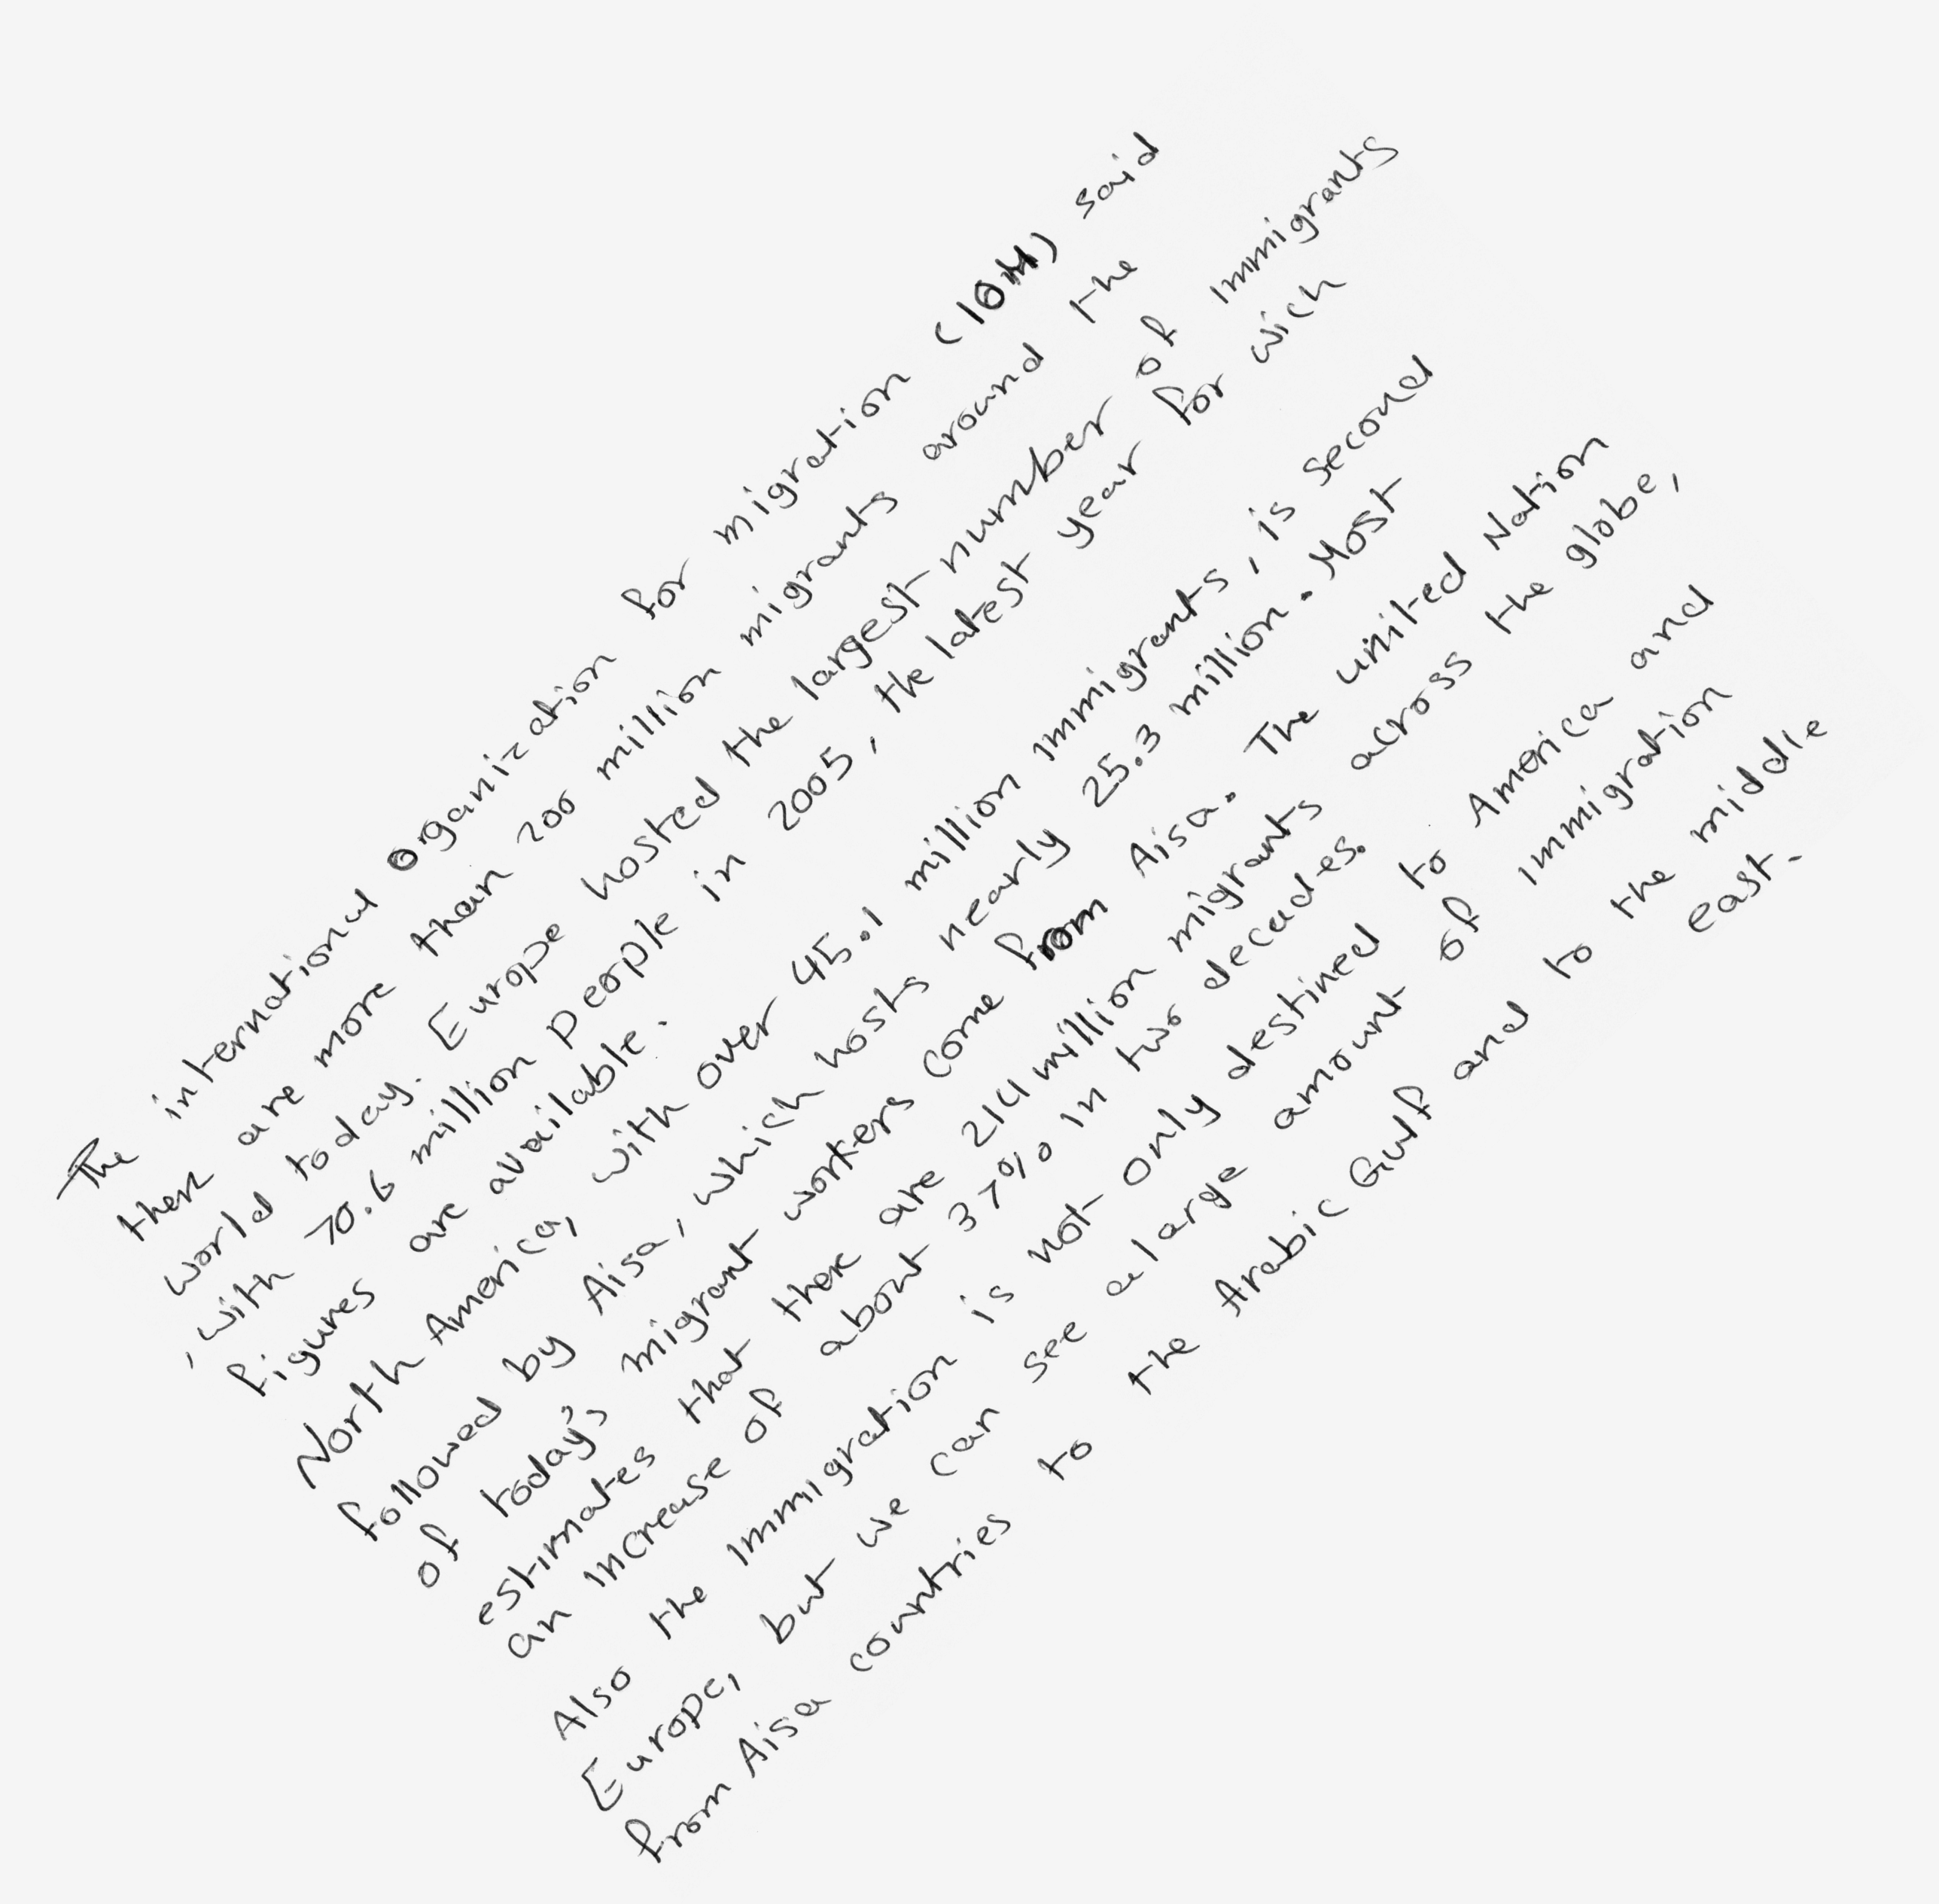 The international organization for migration (IOM) said
there are more than 200 million migrants around the
world today. Europe hosted the largest number of immigrants
, with 70.6 million people in 2005, the latest year for wich
figures are available.
North America, with over 45.1 million immigrants, is second
followed by Aisa, which hosts nearly 25.3 million. Most
of today's migrant workers come from Aisa. The united Nation
estimates that there are 214 million migrants across the globe,
an increase of about 37% in two decades.
Also the immigration is not only destined to America and
Europe, but we can see a large amount of immigration
from Aisa countries to the Arabic Gulf and to the middle
east.